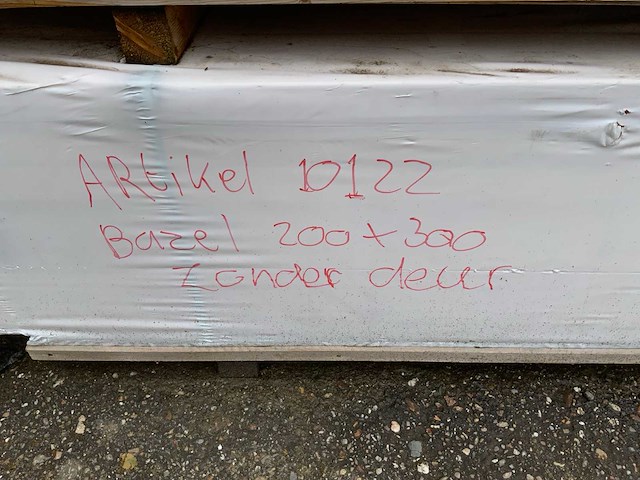 ARtikel 10122
Bazel 200 x 300
Zonder deur